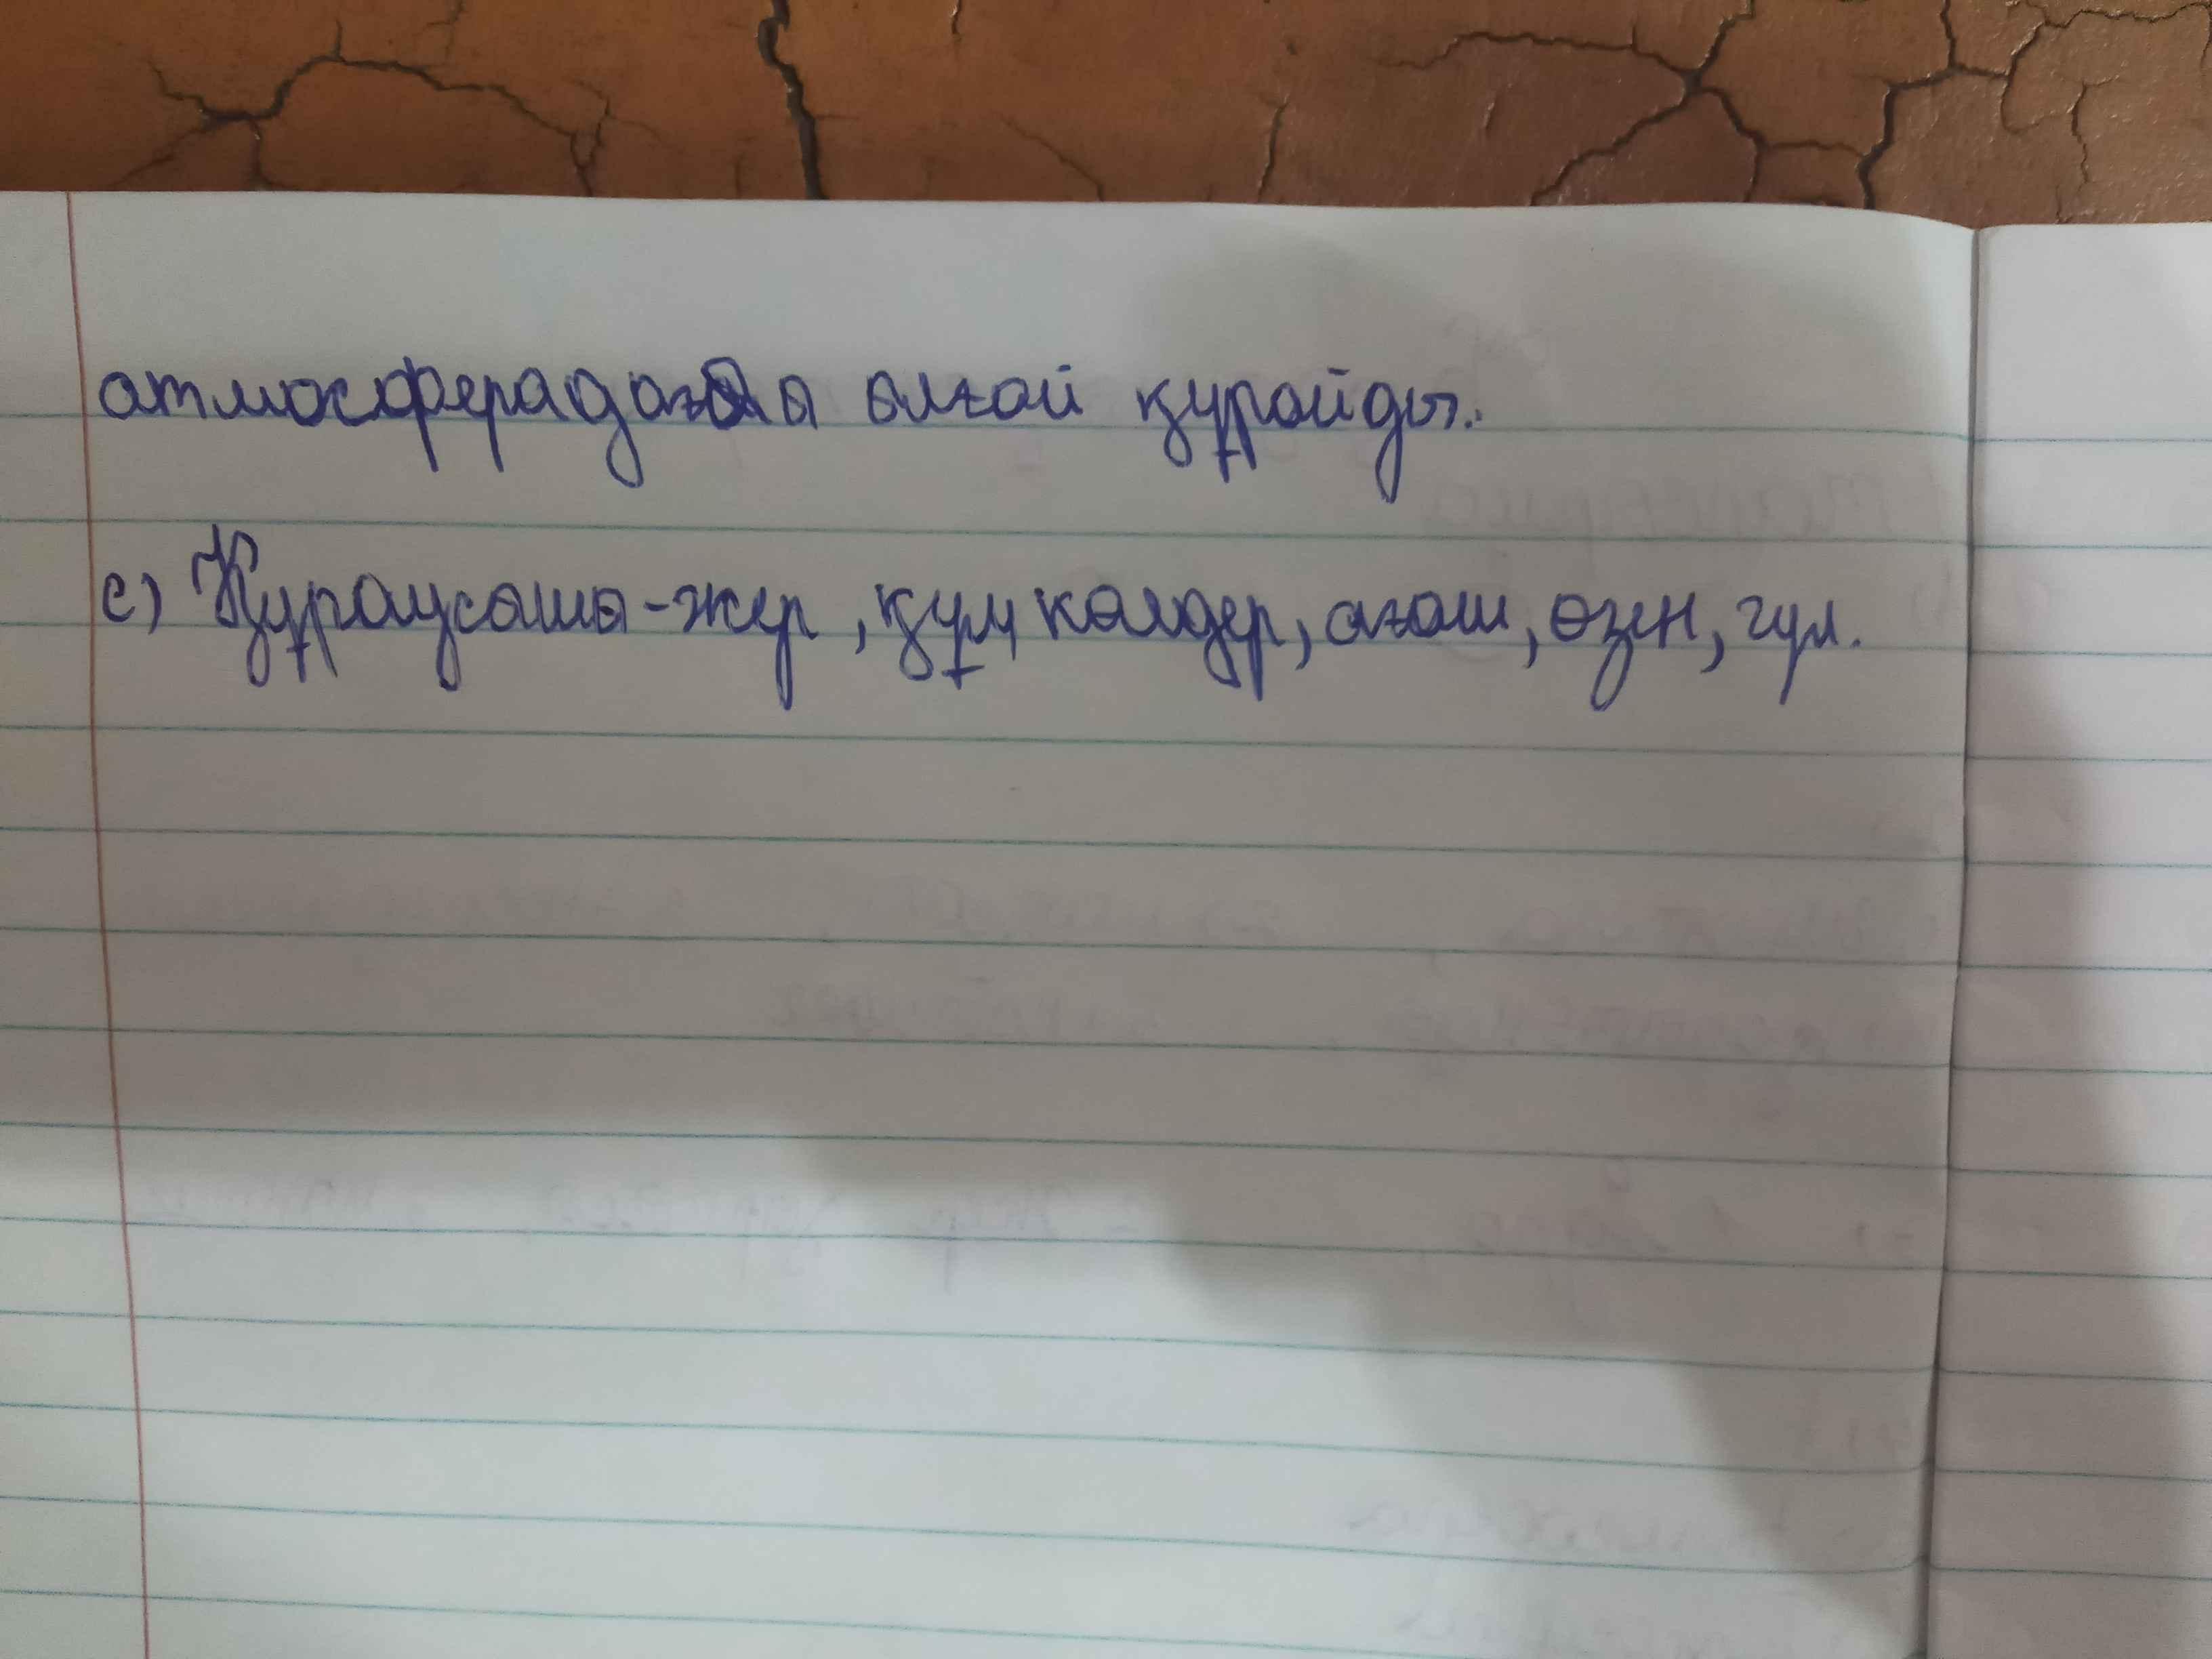 атмосферадағы алғай құрайды.
с) Құраусашы-жер, құм, көлдер, ағаш, өзен, гүл.